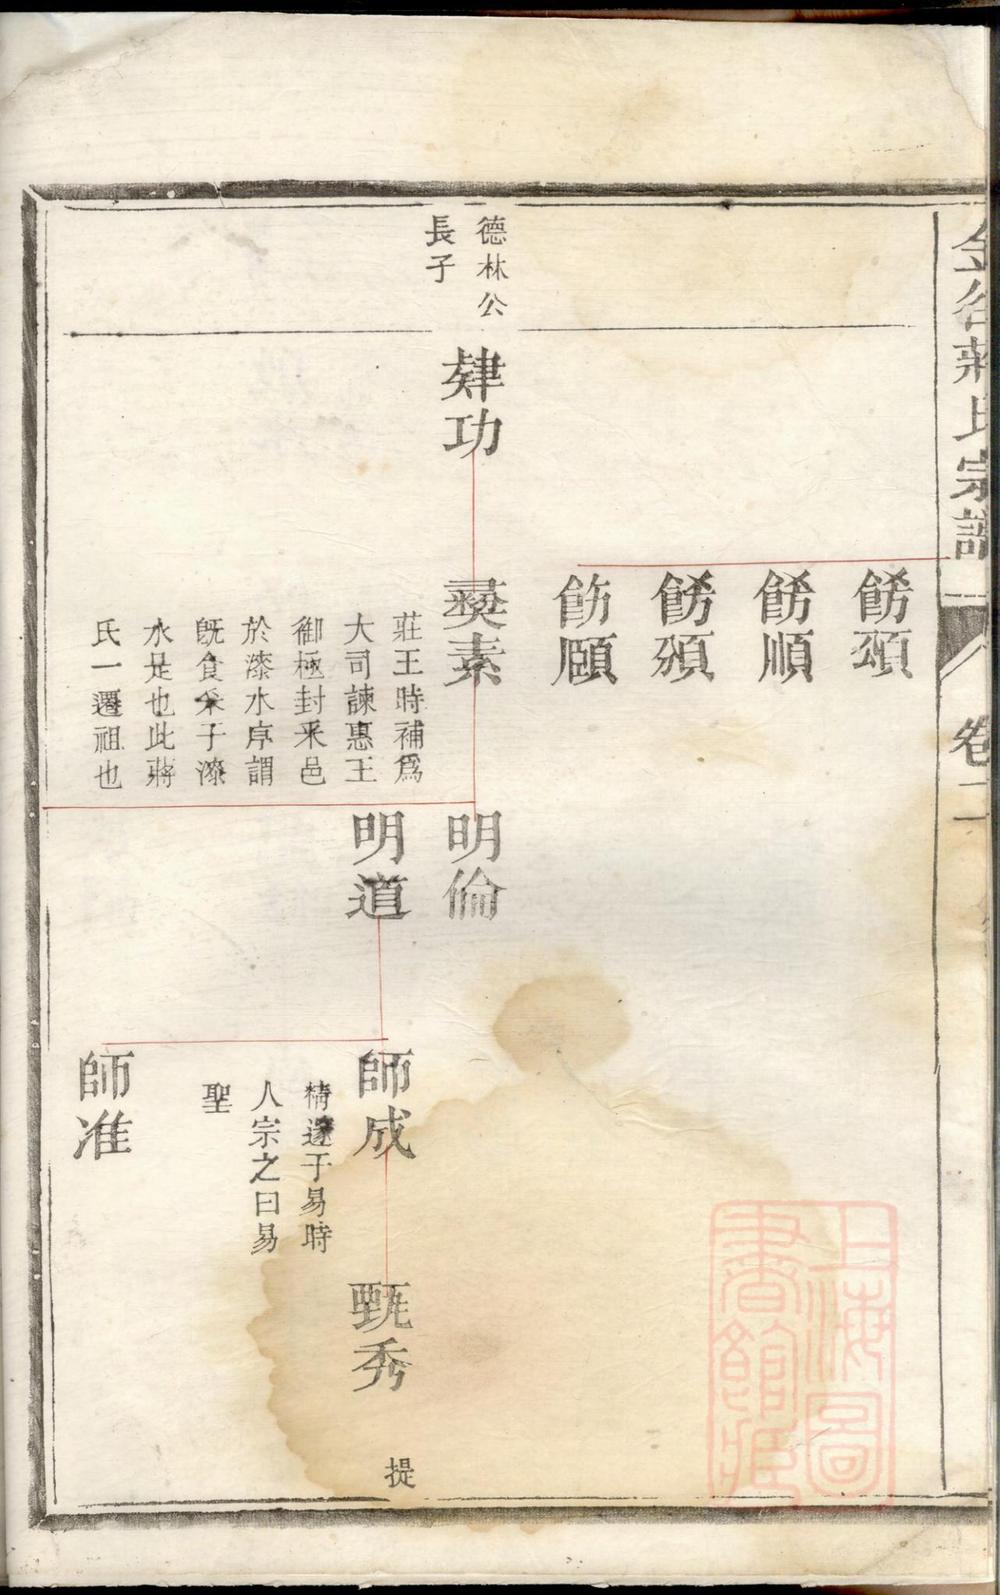 金谷蔣氏宗譜
卷二
餙頌
餙順
餙頒
飭頤
德林公
長子
肄功
彛素
莊王時補爲
大司諫惠王
御極封采邑
於漆水序謂
旣食采于漆
水是也此蔣
氏一遷祖也
明倫
明道
師成
精邃于易時
人宗之曰易
聖
師准
甄秀
提
上海圖
書館藏